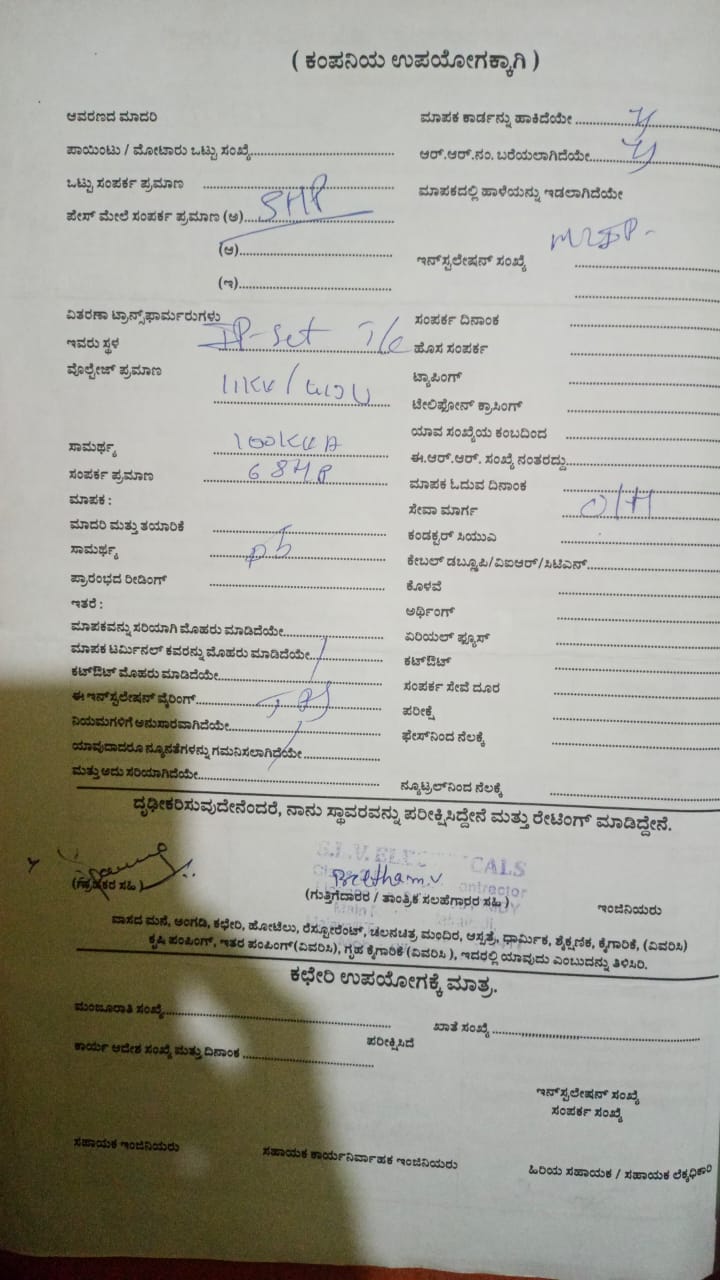 ( ಕಂಪನಿಯ ಉಪಯೋಗಕ್ಕಾಗಿ )
ಆವರಣದ ಮಾದರಿ
ಪಾಯಿಂಟು / ಮೋಟಾರು ಒಟ್ಟು ಸಂಖ್ಯೆ
ಒಟ್ಟು ಸಂಪರ್ಕ ಪ್ರಮಾಣ
ಪೇಸ್ ಮೇಲೆ ಸಂಪರ್ಕ ಪ್ರಮಾಣ (ಅ) 5HP
(ಆ)
(ಇ)
ವಿತರಣಾ ಟ್ರಾನ್ಸ್‌ಫಾರ್ಮರುಗಳು
ಇವರು ಸ್ಥಳ IP-Set T/C
ವೊಲ್ಟೇಜ್ ಪ್ರಮಾಣ
11KV /
ಸಾಮರ್ಥ್ಯ 100KVA
ಸಂಪರ್ಕ ಪ್ರಮಾಣ 68HP
ಮಾಪಕ :
ಮಾದರಿ ಮತ್ತು ತಯಾರಿಕೆ
ಸಾಮರ್ಥ್ಯ
ಪ್ರಾರಂಭದ ರೀಡಿಂಗ್
ಇತರೆ :
ಮಾಪಕವನ್ನು ಸರಿಯಾಗಿ ಮೊಹರು ಮಾಡಿದೆಯೇ
ಮಾಪಕ ಟರ್ಮಿನಲ್ ಕವರನ್ನು ಮೊಹರು ಮಾಡಿದೆಯೇ
ಕಟ್‌ಔಟ್ ಮೊಹರು ಮಾಡಿದೆಯೇ
ಈ ಇನ್‌ಸ್ಟಲೇಷನ್ ವೈರಿಂಗ್
ನಿಯಮಗಳಿಗೆ ಅನುಸಾರವಾಗಿದೆಯೇ
ಯಾವುದಾದರೂ ನ್ಯೂನತೆಗಳನ್ನು ಗಮನಿಸಲಾಗಿದೆಯೇ
ಮತ್ತು ಅದು ಸರಿಯಾಗಿದೆಯೇ
ಮಾಪಕ ಕಾರ್ಡನ್ನು ಹಾಕಿದೆಯೇ y
ಆರ್.ಆರ್.ನಂ. ಬರೆಯಲಾಗಿದೆಯೇ y
ಮಾಪಕದಲ್ಲಿ ಹಾಳೆಯನ್ನು ಇಡಲಾಗಿದೆಯೇ
ಇನ್‌ಸ್ಪಲೇಷನ್ ಸಂಖ್ಯೆ
ಸಂಪರ್ಕ ದಿನಾಂಕ
ಹೊಸ ಸಂಪರ್ಕ
ಟ್ಯಾಪಿಂಗ್
ಟೇಲಿಫೋನ್ ಕ್ರಾಸಿಂಗ್
ಯಾವ ಸಂಖ್ಯೆಯ ಕಂಬದಿಂದ
ಈ.ಆರ್.ಆರ್. ಸಂಖ್ಯೆ ನಂತರದ್ದು
ಮಾಪಕ ಓದುವ ದಿನಾಂಕ
ಸೇವಾ ಮಾರ್ಗ O/H
ಕಂಡಕ್ಟರ್ ಸಿಯುಎ
ಕೇಬಲ್ ಡಬ್ಲೂಪಿ/ವಿಐಆರ್/ಸಿಟಿಎಸ್
ಕೊಳವೆ
ಅರ್ಥಿಂಗ್
ಏರಿಯಲ್ ಫ್ಯೂಸ್
ಕಟ್‌ಔಟ್
ಸಂಪರ್ಕ ಸೇವೆ ದೂರ
ಪರೀಕ್ಷೆ
ಫೇಸ್‌ನಿಂದ ನೆಲಕ್ಕೆ
ನ್ಯೂಟ್ರಲ್‌ನಿಂದ ನೆಲಕ್ಕೆ
ದೃಢೀಕರಿಸುವುದೇನೆಂದರೆ, ನಾನು ಸ್ಥಾವರವನ್ನು ಪರೀಕ್ಷಿಸಿದ್ದೇನೆ ಮತ್ತು ರೇಟಿಂಗ್ ಮಾಡಿದ್ದೇನೆ.
Pretham.v
(ಗ್ರಾಹಕರ ಸಹಿ )
(ಗುತ್ತಿಗೆದಾರರ / ತಾಂತ್ರಿಕ ಸಲಹೆಗಾರರ ಸಹಿ )
ಇಂಜಿನಿಯರು
ವಾಸದ ಮನೆ, ಅಂಗಡಿ, ಕಛೇರಿ, ಹೋಟೆಲು, ರೆಸ್ಟೋರೆಂಟ್, ಚಲನಚಿತ್ರ ಮಂದಿರ, ಆಸ್ಪತ್ರೆ, ಧಾರ್ಮಿಕ, ಶೈಕ್ಷಣಿಕ, ಕೈಗಾರಿಕೆ, (ವಿವರಿಸಿ)
ಕೃಷಿ ಪಂಪಿಂಗ್, ಇತರ ಪಂಪಿಂಗ್(ವಿವರಿಸಿ), ಗೃಹ ಕೈಗಾರಿಕೆ (ವಿವರಿಸಿ ), ಇದರಲ್ಲಿ ಯಾವುದು ಎಂಬುದನ್ನು ತಿಳಿಸಿರಿ.
ಕಛೇರಿ ಉಪಯೋಗಕ್ಕೆ ಮಾತ್ರ.
ಮಂಜೂರಾತಿ ಸಂಖ್ಯೆ
ಖಾತೆ ಸಂಖ್ಯೆ
ಕಾರ್ಯ ಆದೇಶ ಸಂಖ್ಯೆ ಮತ್ತು ದಿನಾಂಕ
ಪರೀಕ್ಷಿಸಿದೆ
ಇನ್‌ಸ್ಪಲೇಷನ್ ಸಂಖ್ಯೆ
ಸಂಪರ್ಕ ಸಂಖ್ಯೆ
ಸಹಾಯಕ ಇಂಜಿನಿಯರು
ಸಹಾಯಕ ಕಾರ್ಯನಿರ್ವಾಹಕ ಇಂಜಿನಿಯರು
ಹಿರಿಯ ಸಹಾಯಕ / ಸಹಾಯಕ ಲೆಕ್ಕಧಿಕಾರಿ